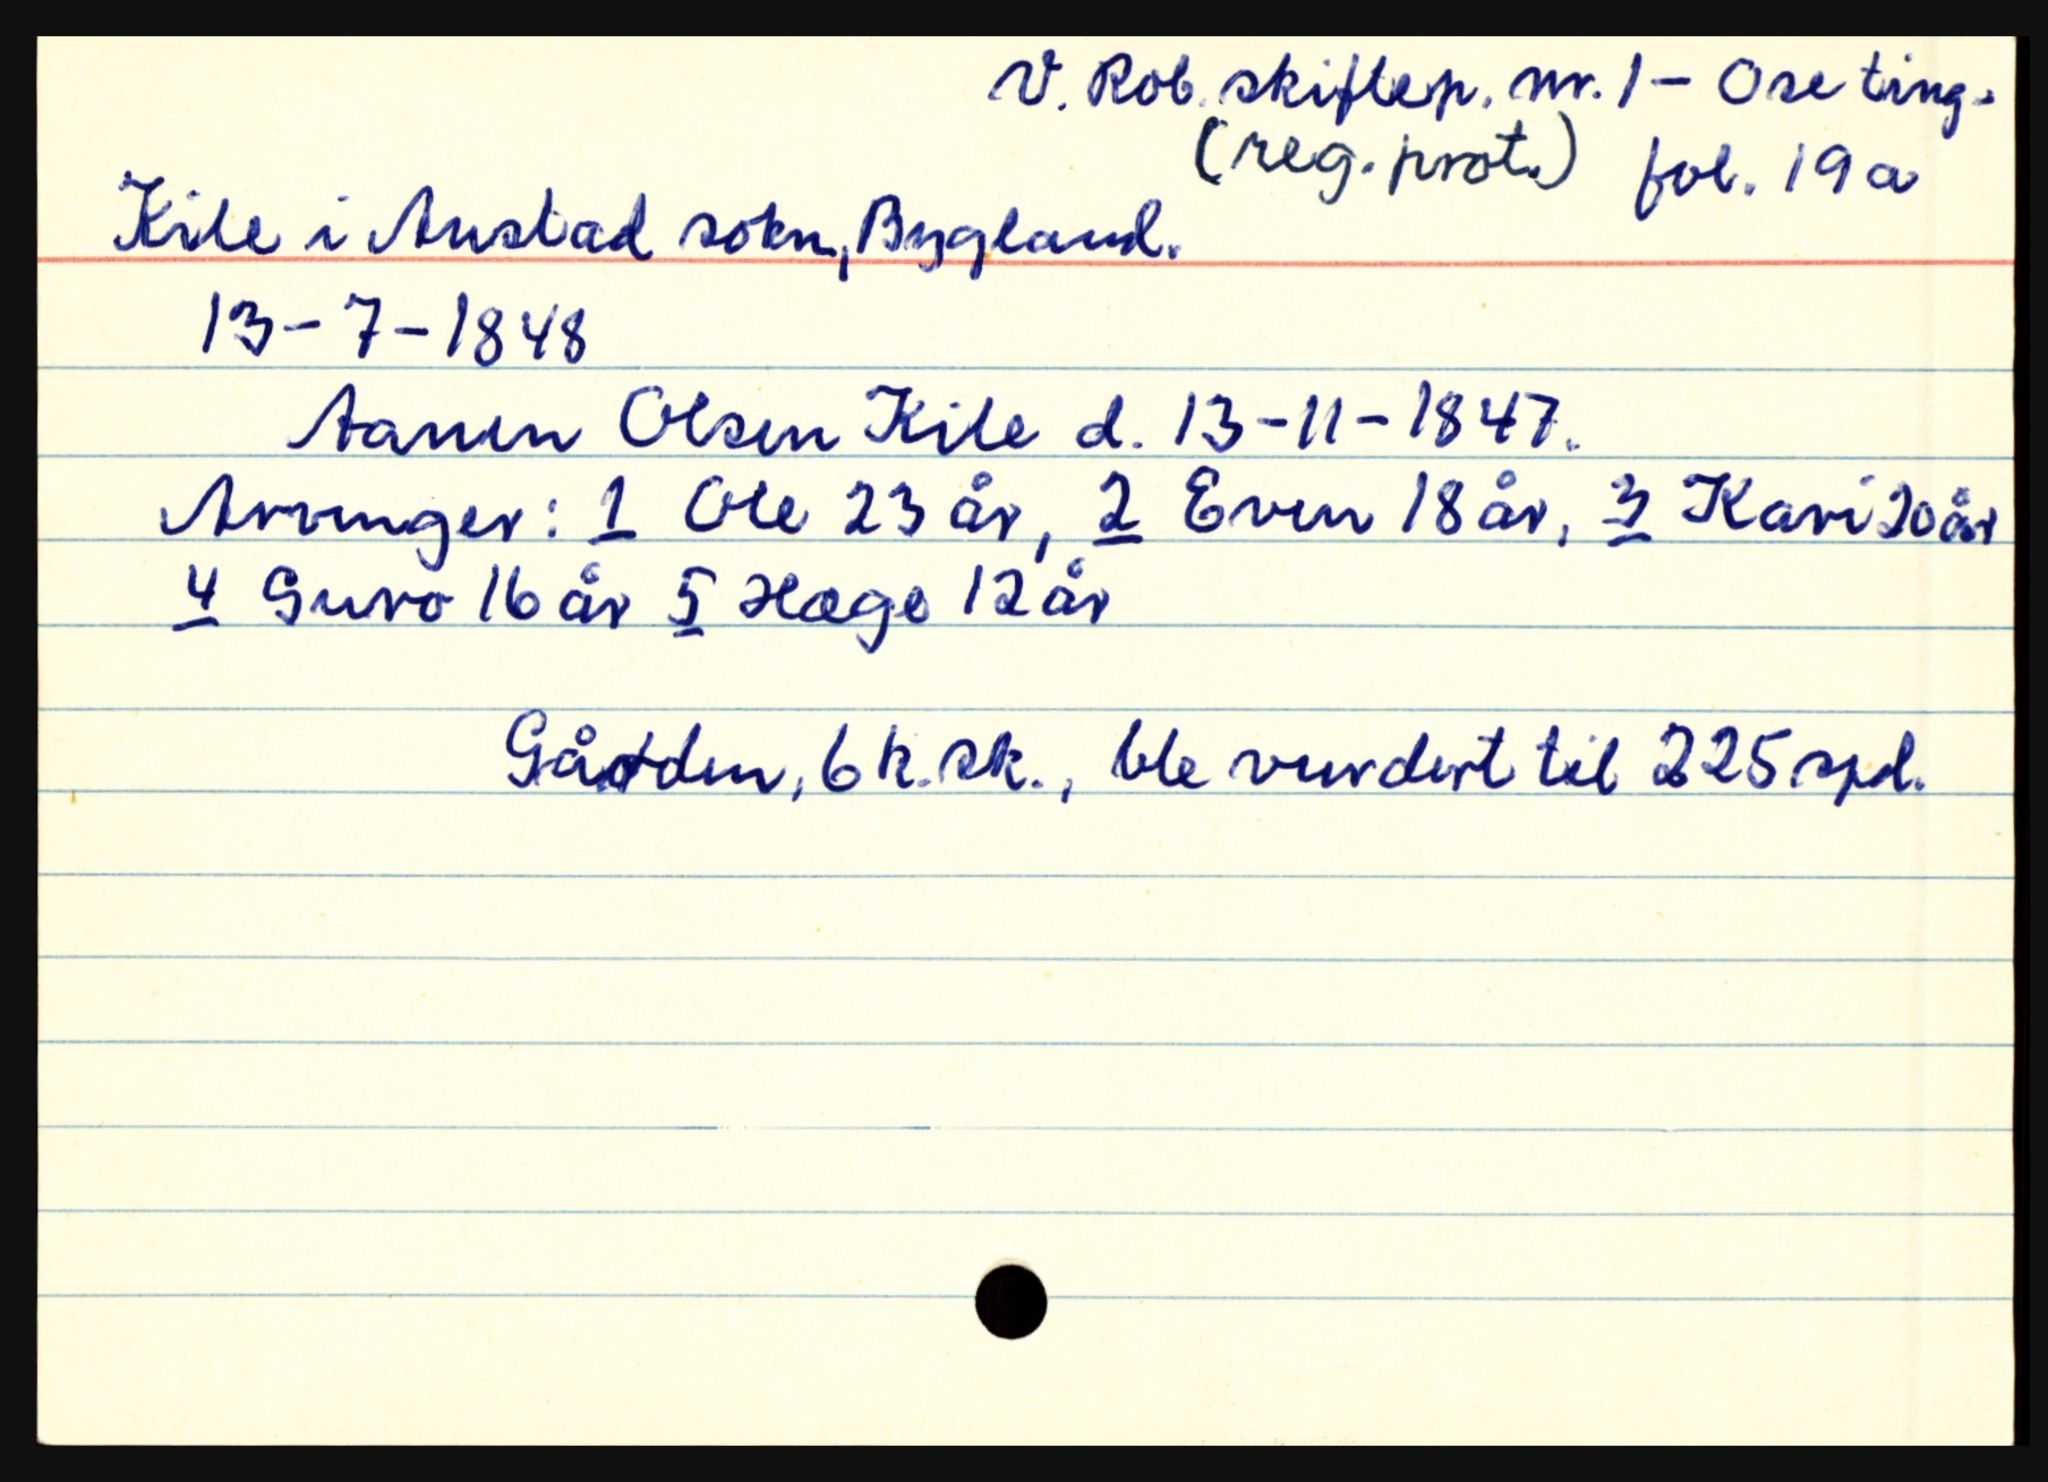 V. Rob. skiftep. nr. 1 - Ose ting.
(reg. prot.) fol. 19a
Kile i Austad sokn, Bygland.
13-7-1848
Aanen Olsen Kile d. 13-11-1847.
Arvinger: 1 Ole 23 år, 2 Even 18 år, 3 Kari 20 år
4 Guro 16 år 5 Hæge 12 år
Gården, 6 k. sk., ble vurdert til 225 spd.